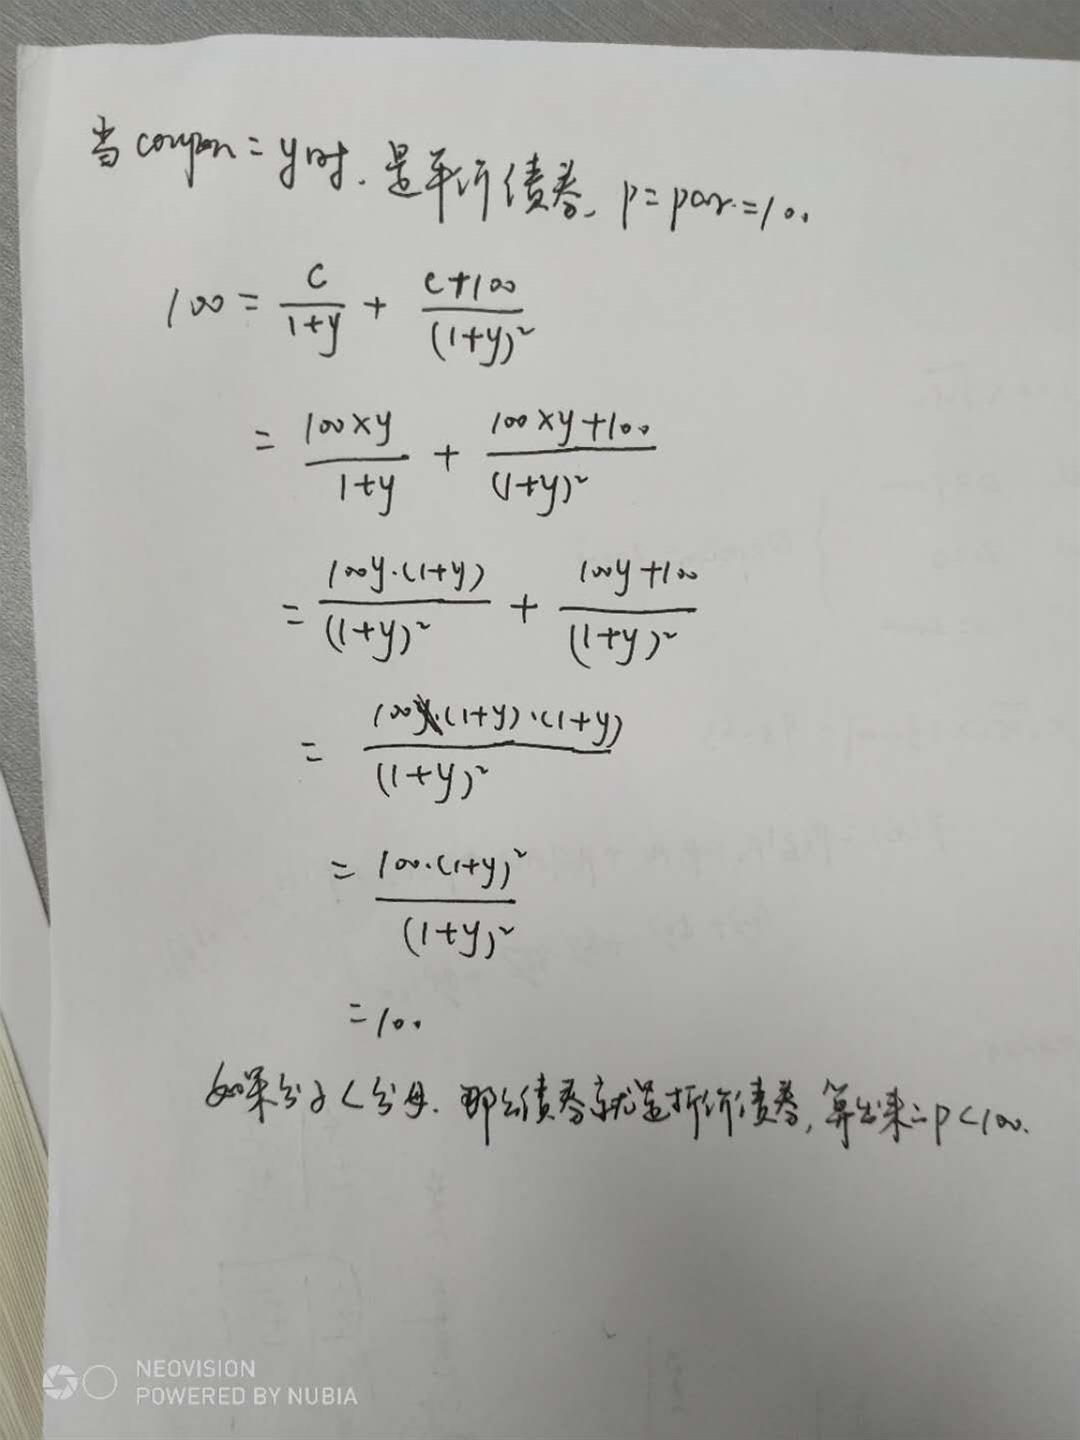 当 coupon = y 时. 是平价债券, P = par. = 100
100 = c/(1+y) + (c+100)/(1+y)²
= (100×y)/(1+y) + (100×y+100)/(1+y)²
= (100y·(1+y))/(1+y)² + (100y+100)/(1+y)²
= (100·(1+y)·(1+y))/(1+y)²
= (100·(1+y)²)/(1+y)²
= 100
如果分子<分母. 那么债券就是折价债券, 算出来=P<100.
NEOVISION
POWERED BY NUBIA